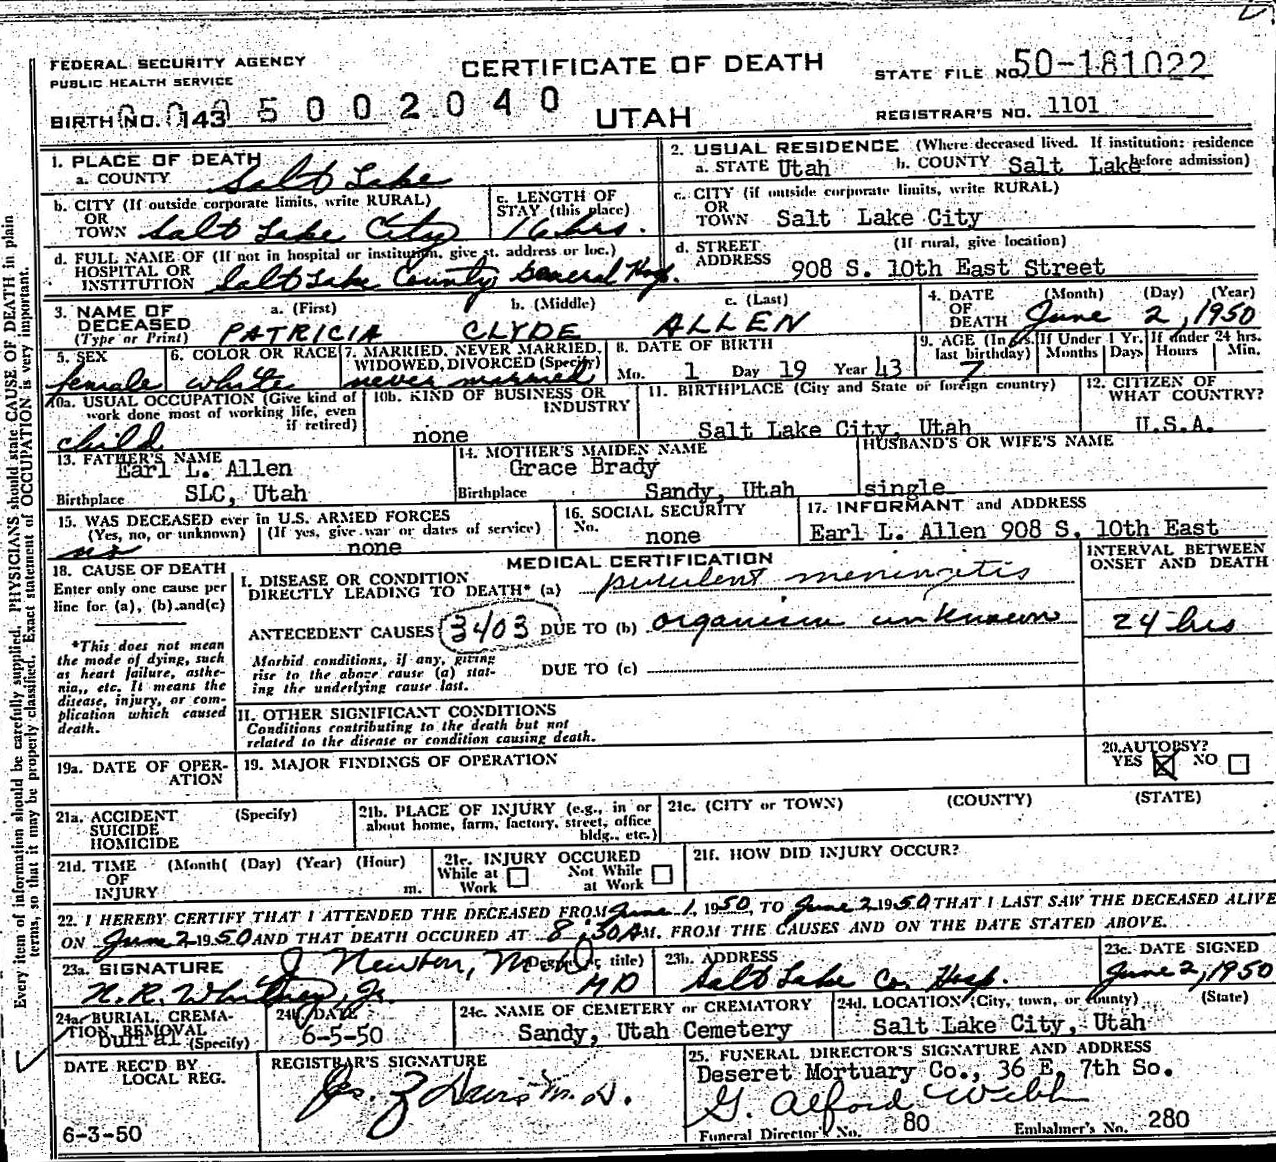 FEDERAL SECURITY AGENCY
PUBLIC HEALTH SERVICE
CERTIFICATE OF DEATH
STATE FILE NO. 50-181022
BIRTH NO. 143 5002040
UTAH
REGISTRAR'S NO. 1101
Every item of information should be carefully supplied. PHYSICIANS should state CAUSE OF DEATH in plain
terms, so that it may be properly classified. Exact statement of OCCUPATION is very important.
1. PLACE OF DEATH
a. COUNTY Salt Lake
2. USUAL RESIDENCE (Where deceased lived. If institution: residence
before admission)
a. STATE Utah b. COUNTY Salt Lake
b. CITY (If outside corporate limits, write RURAL)
OR
TOWN Salt Lake City
c. LENGTH OF
STAY (this place)
16 hrs.
c. CITY (if outside corporate limits, write RURAL)
OR
TOWN Salt Lake City
d. FULL NAME OF (If not in hospital or institution, give st. address or loc.)
HOSPITAL OR
INSTITUTION Salt Lake County General Hosp.
d. STREET (If rural, give location)
ADDRESS 908 S. 10th East Street
3. NAME OF
DECEASED
(Type or Print)
a. (First) b. (Middle) c. (Last)
PATRICIA CLYDE ALLEN
4. DATE
OF
DEATH
(Month) (Day) (Year)
June 2, 1950
5. SEX
female
6. COLOR OR RACE
white
7. MARRIED, NEVER MARRIED,
WIDOWED, DIVORCED (Specify)
never married
8. DATE OF BIRTH
Mo. 1 Day 19 Year 43
9. AGE (In
last birthday)
7
If Under 1 Yr.
Months Days
If under 24 hrs.
Hours Min.
10a. USUAL OCCUPATION (Give kind of
work done most of working life, even
if retired)
child
10b. KIND OF BUSINESS OR
INDUSTRY
none
11. BIRTHPLACE (City and State or foreign country)
Salt Lake City, Utah
12. CITIZEN OF
WHAT COUNTRY?
U.S.A.
13. FATHER'S NAME
Earl L. Allen
Birthplace SLC, Utah
14. MOTHER'S MAIDEN NAME
Grace Brady
Birthplace Sandy, Utah
HUSBAND'S OR WIFE'S NAME
single
15. WAS DECEASED ever in U.S. ARMED FORCES
(Yes, no, or unknown) (If yes, give war or dates of service)
no none
16. SOCIAL SECURITY
No. none
17. INFORMANT and ADDRESS
Earl L. Allen 908 S. 10th East
18. CAUSE OF DEATH
Enter only one cause per
line for (a), (b) and (c)
*This does not mean
the mode of dying, such
as heart failure, asthe-
nia,, etc. It means the
disease, injury, or com-
plication which caused
death.
MEDICAL CERTIFICATION
INTERVAL BETWEEN
ONSET AND DEATH
I. DISEASE OR CONDITION
DIRECTLY LEADING TO DEATH* (a) purulent meningitis
ANTECEDENT CAUSES 3403 DUE TO (b) organism unknown
24 hrs
Morbid conditions, if any, giving
rise to the above cause (a) stat-
ing the underlying cause last.
DUE TO (c)
II. OTHER SIGNIFICANT CONDITIONS
Conditions contributing to the death but not
related to the disease or condition causing death.
19a. DATE OF OPER-
ATION
19. MAJOR FINDINGS OF OPERATION
20. AUTOPSY?
YES NO
21a. ACCIDENT (Specify)
SUICIDE
HOMICIDE
21b. PLACE OF INJURY (e.g., in or
about home, farm, factory, street, office
bldg., etc.)
21c. (CITY or TOWN) (COUNTY) (STATE)
21d. TIME (Month( (Day) (Year) (Hour)
OF
INJURY m.
21e. INJURY OCCURED
While at Work
Not While at Work
21f. HOW DID INJURY OCCUR?
22. I HEREBY CERTIFY THAT I ATTENDED THE DECEASED FROM June 1, 1950, TO June 2 1950 THAT I LAST SAW THE DECEASED ALIVE
ON June 2 1950 AND THAT DEATH OCCURED AT 8:30 AM. FROM THE CAUSES AND ON THE DATE STATED ABOVE.
23a. SIGNATURE J Newton, M.D. (Degree or title)
N.R. Whitney, Jr. MD
23b. ADDRESS
Salt Lake Co. Hosp.
23c. DATE SIGNED
June 2, 1950
24a. BURIAL, CREMA-
TION, REMOVAL
burial (Specify)
24b. DATE
6-5-50
24c. NAME OF CEMETERY or CREMATORY
Sandy, Utah Cemetery
24d. LOCATION (City, town, or county) (State)
Salt Lake City, Utah
DATE REC'D BY
LOCAL REG.
6-3-50
REGISTRAR'S SIGNATURE
M.D.
25. FUNERAL DIRECTOR'S SIGNATURE AND ADDRESS
Deseret Mortuary Co., 36 E. 7th So.
G. Alford Webb
Funeral Director's No. 80 Embalmer's No. 280